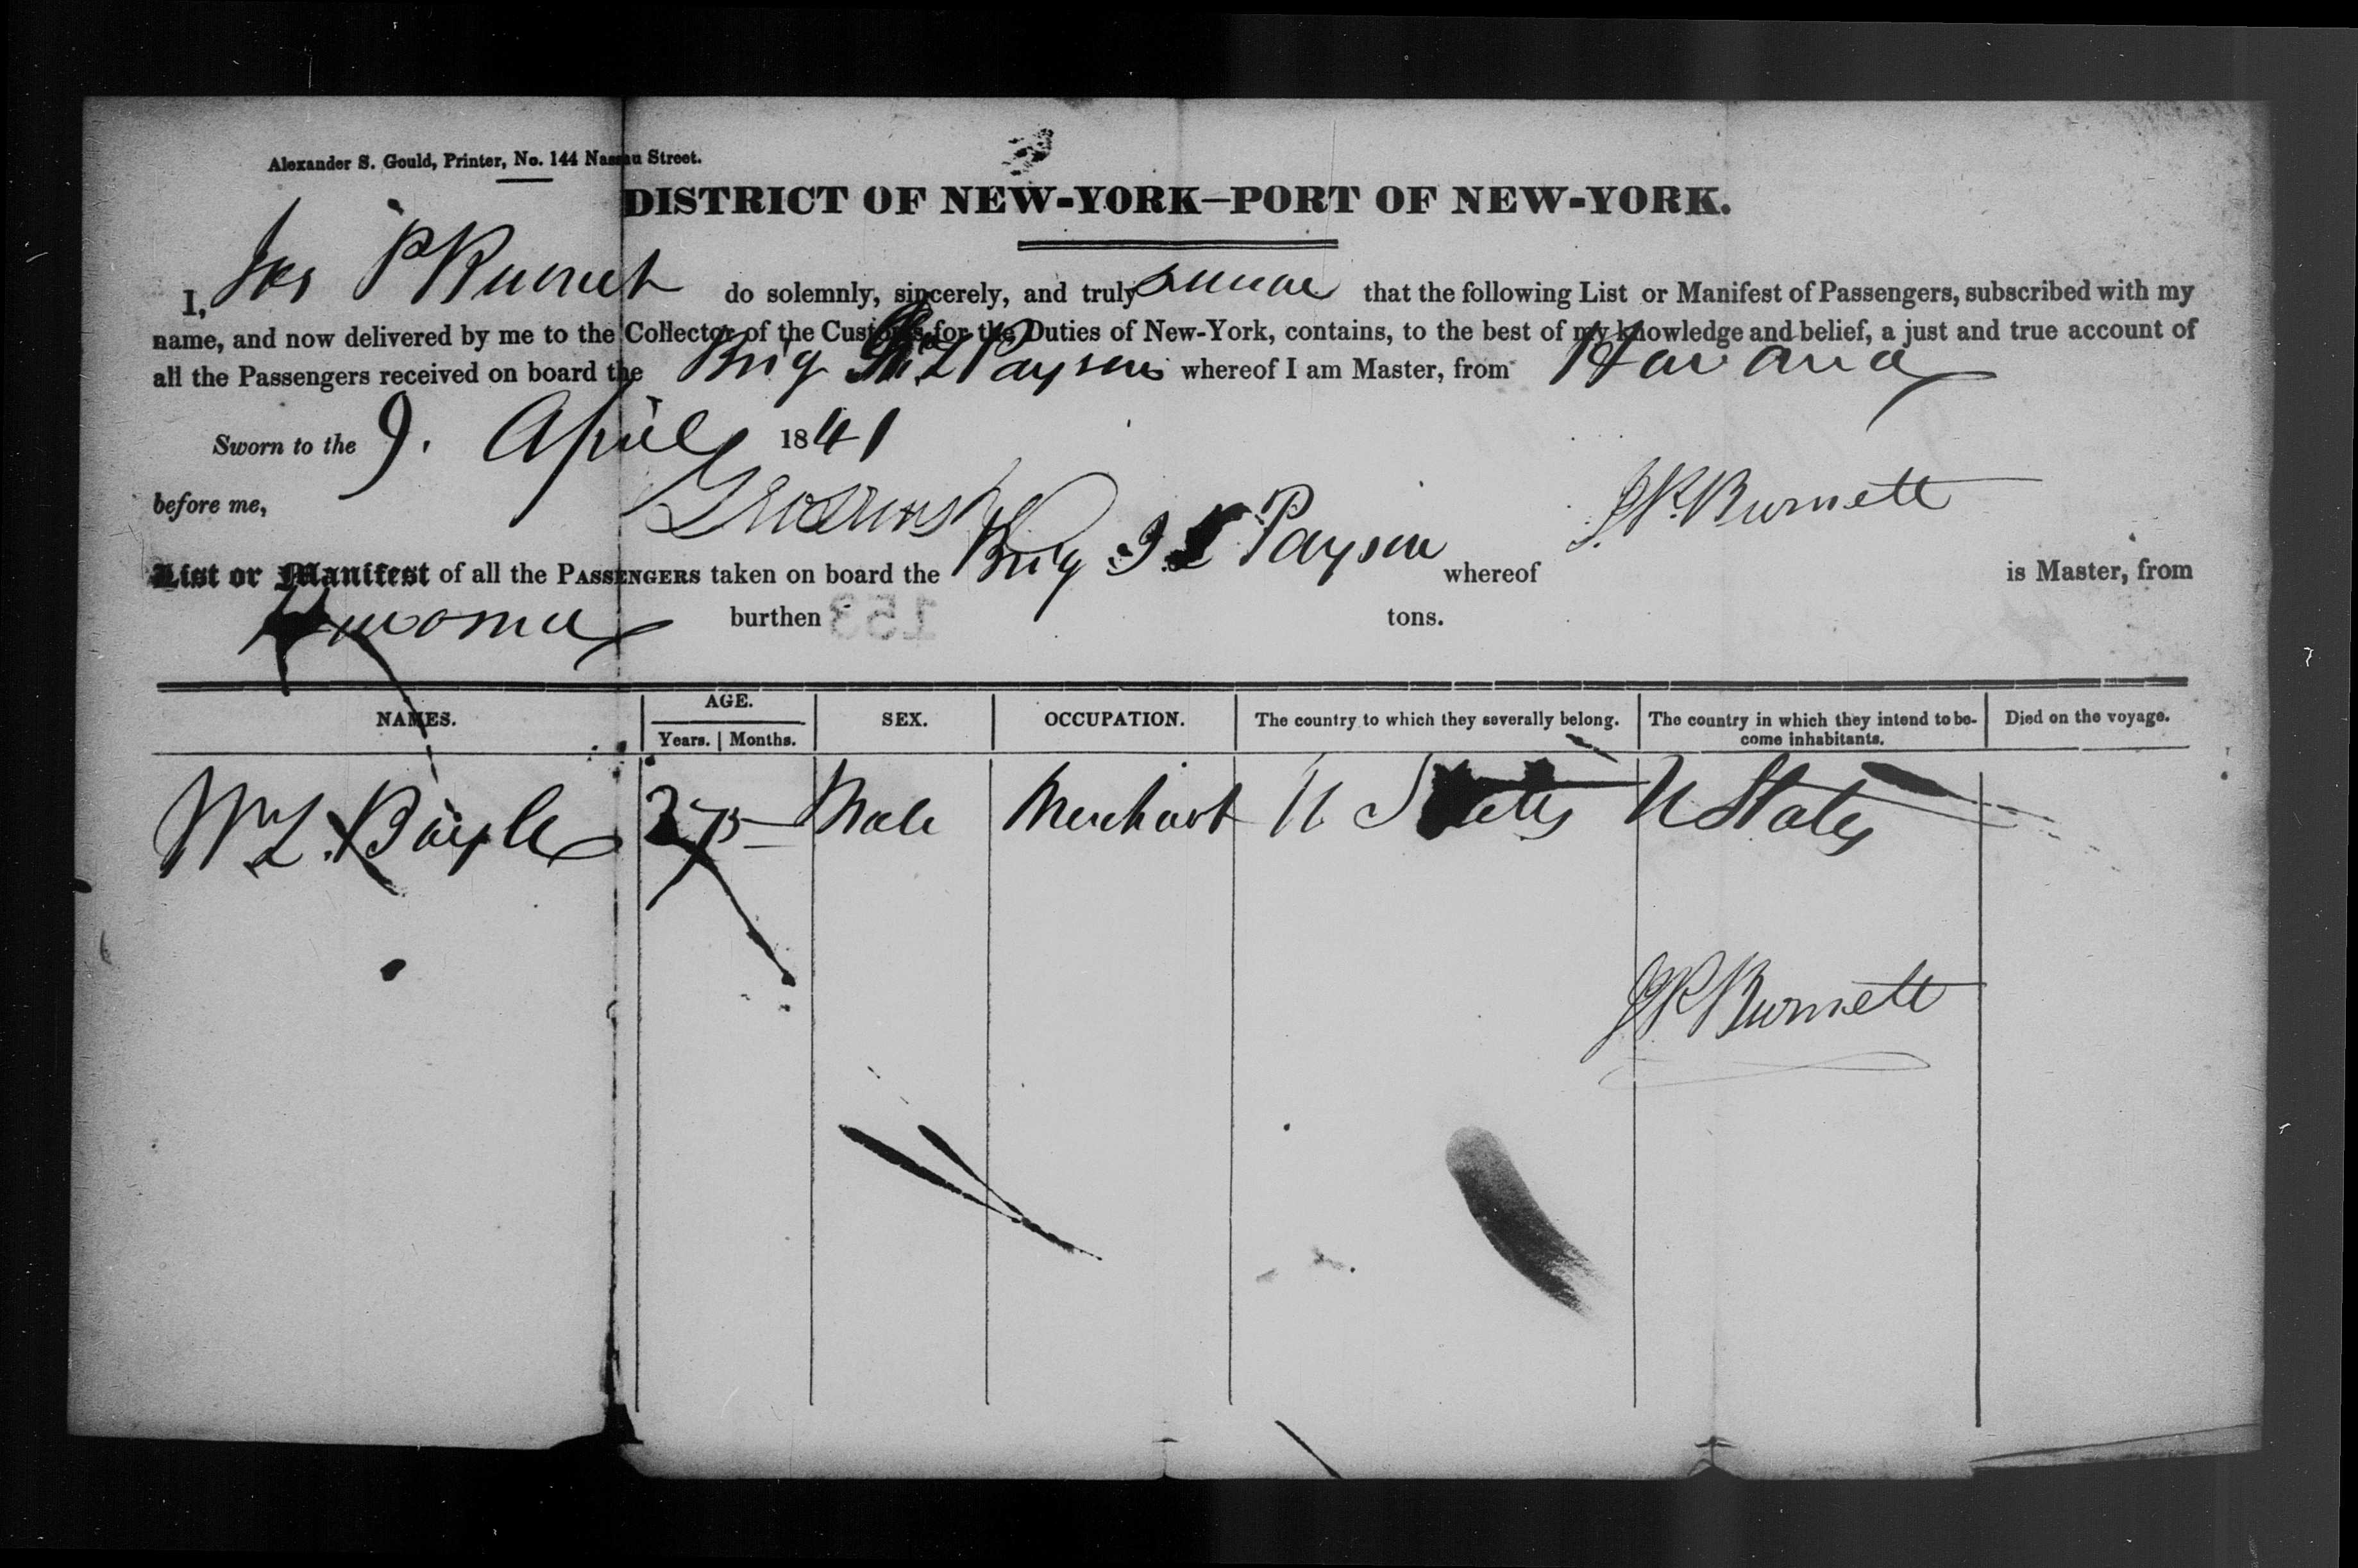 Alexander S. Gould, Printer, No. 144 Nassau Street.
DISTRICT OF NEW-YORK—PORT OF NEW-YORK.
I, Jas P Burnett do solemnly, sincerely, and truly swear that the following List or Manifest of Passengers, subscribed with my
name, and now delivered by me to the Collector of the Customs for the Duties of New-York, contains, to the best of my knowledge and belief, a just and true account of
all the Passengers received on board the Brig L Payson whereof I am Master, from Havana
Sworn to the 9. April 1841
before me, J P. Burnett
List or Manifest of all the PASSENGERS taken on board the Brig L Payson whereof is Master, from
Havana burthen tons.
153
NAMES. AGE. SEX. OCCUPATION. The country to which they severally belong. The country in which they intend to be- Died on the voyage.
Years. Months. come inhabitants.
W L. Male Merchant U States U States
J P Burnett